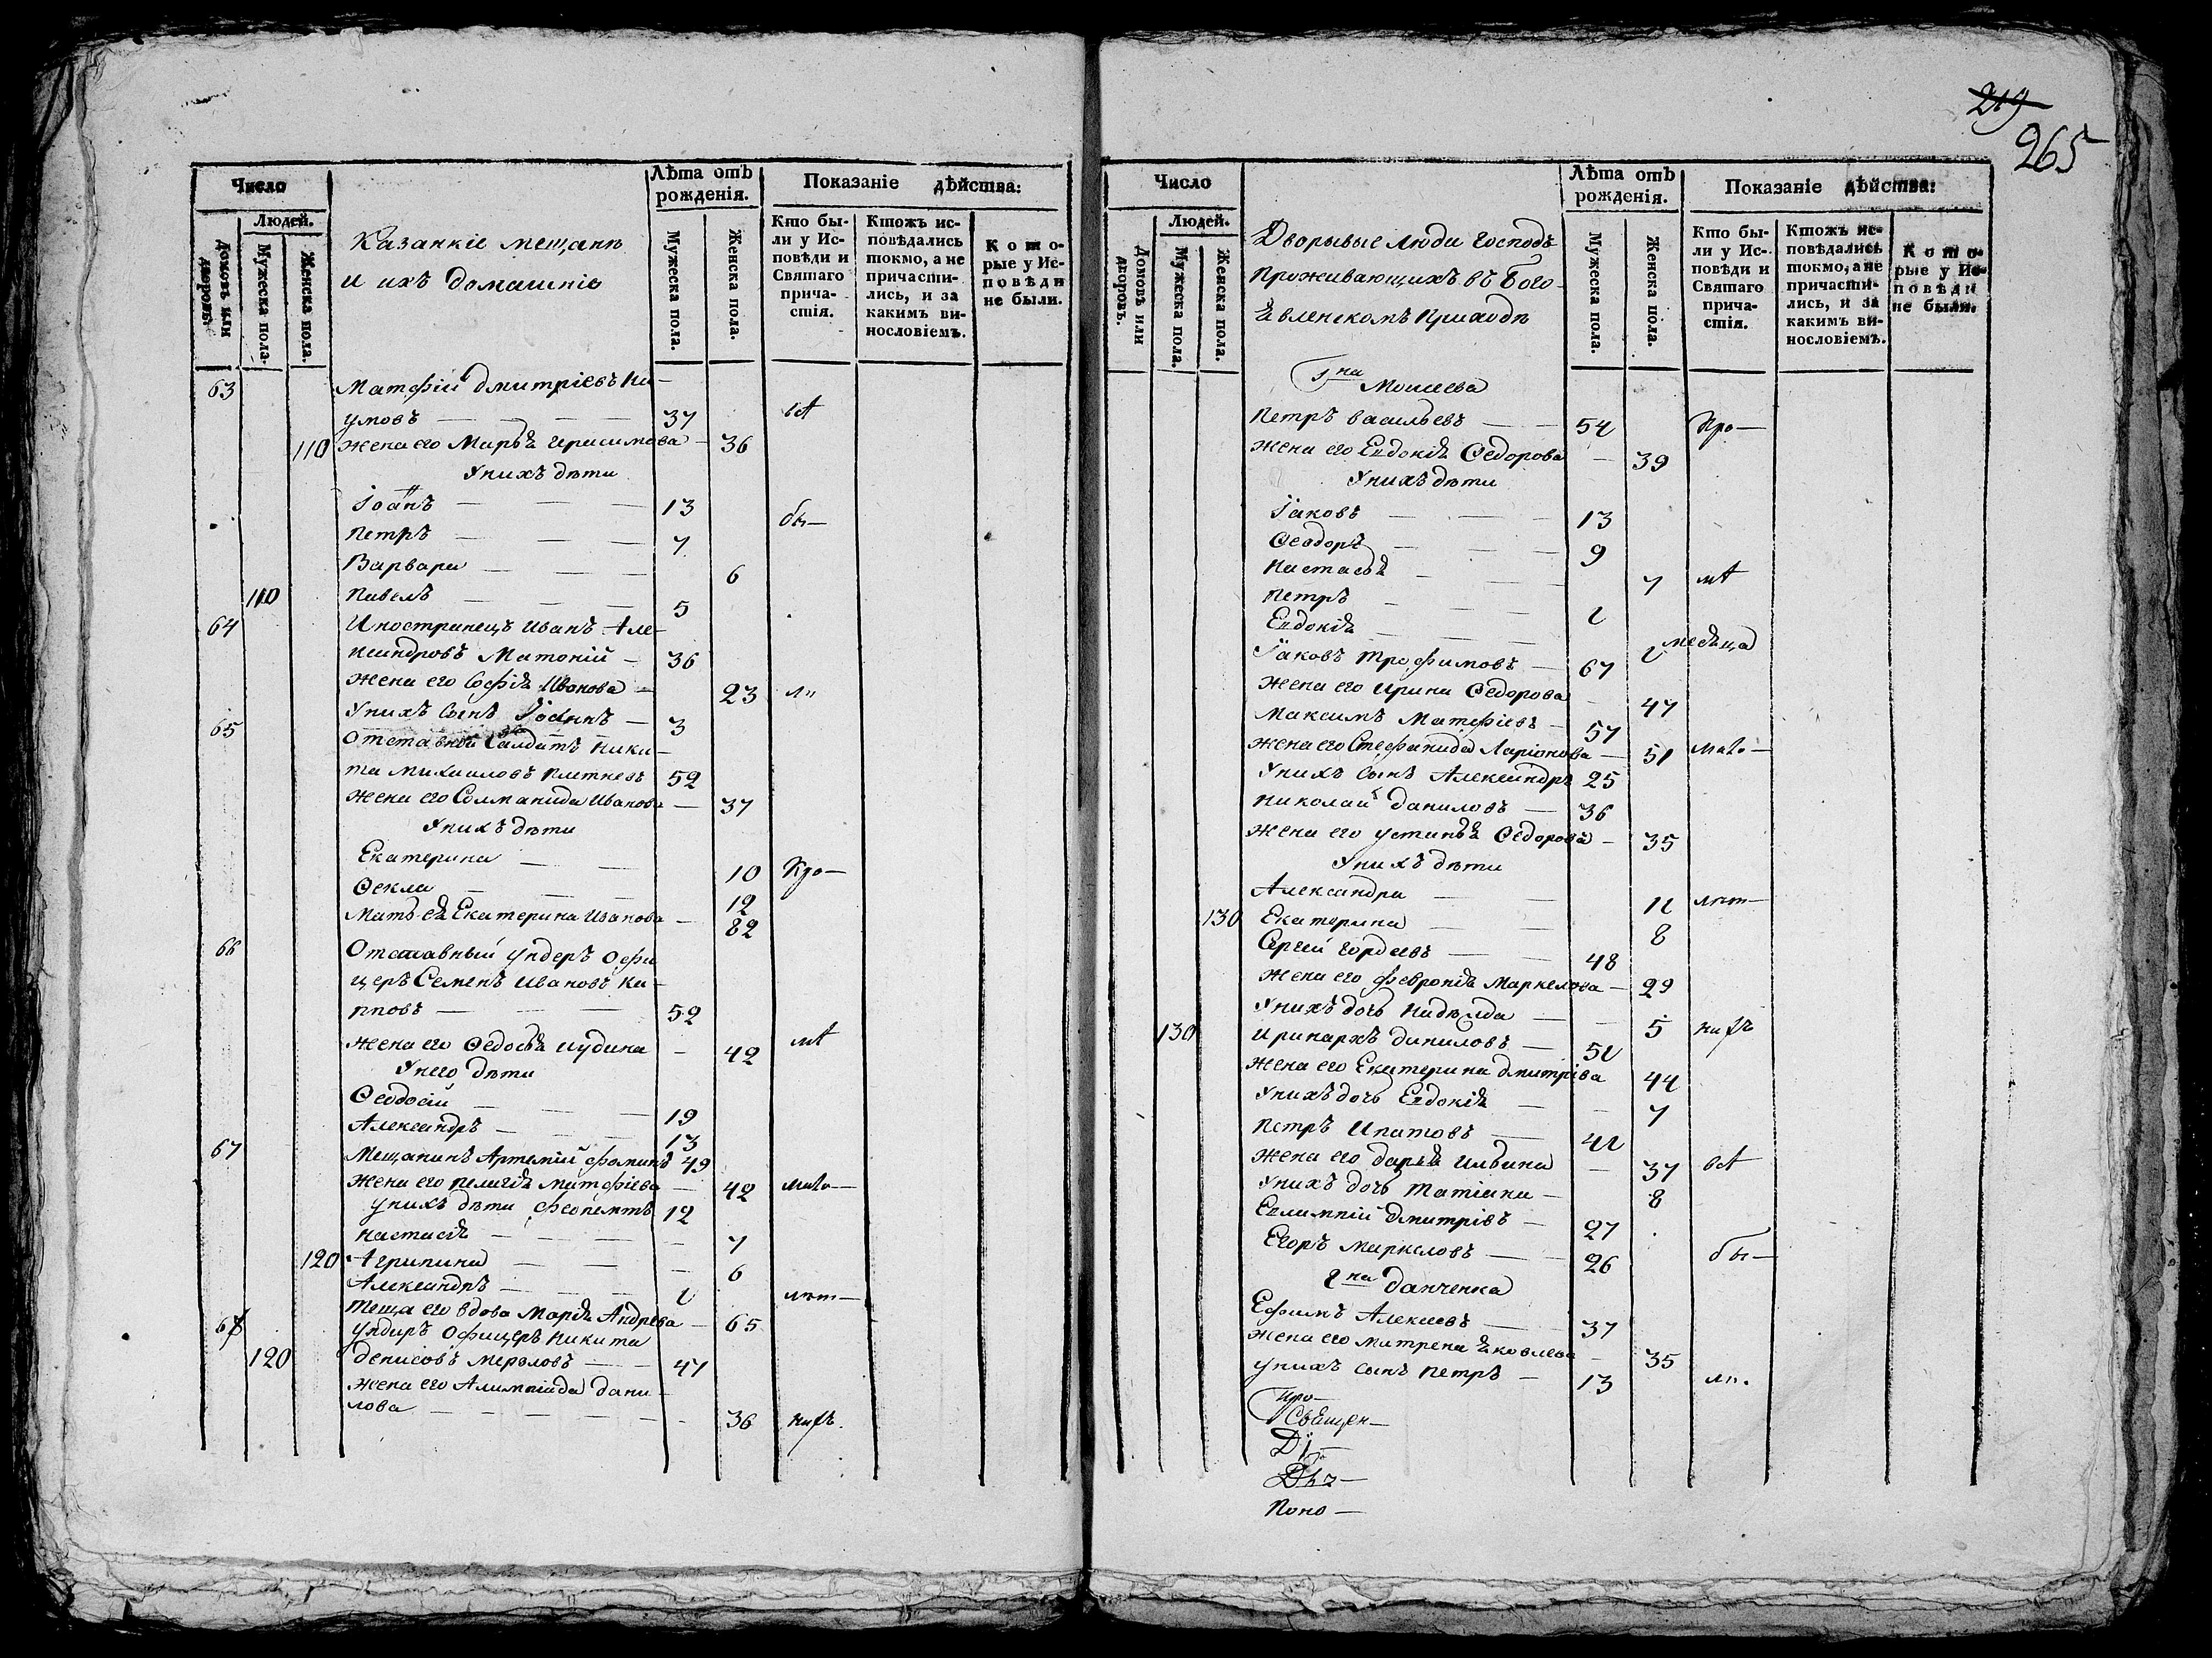 219
265
Число
Лѣта отъ рожденія.
Показаніе дѣйства:
Людей.
Домовъ или дворовъ.
Мужеска пола.
Женска пола.
Казанкіе мещанѣ
и ихъ домашніе
Мужеска пола.
Женска пола.
Кто бы-
ли у Ис-
повѣди и
Святаго
прича-
стія.
Ктожъ ис-
повѣдались
токмо, а не
причасти-
лись, и за
какимъ ви-
нословіемъ.
Кото-
рые у Ис-
повѣди
не были.
63 Матфій Дмитріевъ На-
умовъ — 37
110 жена его Марья — 36
У нихъ дѣти
Іоаннъ — 13 бы—
Петръ — 7
Варвара — 6
110 Павелъ — 5
64 Иностранецъ Иванъ Але-
ксандровъ Матоній — 36
жена его Софія Иванова — 23 ли
У нихъ сынъ Іоаннъ — 3
65 Отставной Салдатъ Ники-
та Михаиловъ Плетневъ 52
жена его Соломанида Иванова — 37
У нихъ дѣти
Екатерина — 10 Кро—
Ѳекла — 12
Мать ея Екатерина Иванова — 82
66 Отставный ундеръ Офи
церъ Семенъ Ивановъ Ка-
рповъ — 52
жена его Ѳедосья Иудина — 42
У него дѣти
Ѳеодосій — 19
Александръ — 13
67 Мещанинъ Артемій Фоминъ 49
жена его Пелагія Матфіева — 42
у нихъ дѣти Феопемтъ 12
Настасія — 7
120 Агрипина — 6
Александръ — 1 лѣт—
Теща его вдова Марія Андрѣева — 65
68 Ундиръ Офицеръ Никита
120 Денисовъ — 47
жена его Алимпіада Дани-
лова — 36
Число
Лѣта отъ рожденія.
Показаніе дѣйства:
Людей.
Домовъ или дворовъ.
Мужеска пола.
Женска пола.
Дворывые люди Господъ
Проживающихъ въ Бого-
явленскомъ Приходѣ
Мужеска пола.
Женска пола.
Кто бы-
ли у Ис-
повѣди и
Святаго
прича-
стія.
Ктожъ ис-
повѣдались
токмо, а не
причасти-
лись, и за
какимъ ви-
нословіемъ.
Кото-
рые у Ис-
повѣди
не были.
Гна Моисеева
Петръ Васильевъ — 54 Кро—
жена его Евдокія Ѳедорова — 39
У нихъ дѣти
Іаковъ — 13
Ѳеодоръ — 9
Настасья — 7
Петръ — 1
Евдокія — 1 месяца
Іаковъ Трофимовъ — 67
жена его Ирина Ѳедорова — 47
Максимъ Матфіевъ — 57
жена его Стефанида Ларіонова — 51
У нихъ сынъ Александръ 25
Николай Даниловъ — 36
жена его Устинья Ѳедорова — 35
У нихъ дѣти
Александра — 11 лѣт—
130 Екатерина — 8
Сергій Гордеевъ — 48
жена его Февронія Маркелова — 29
У нихъ дочь Надежда — 5
130 Иринархъ Даниловъ — 51
жена его Екатерина Дмитріева 44
У нихъ дочь Евдокія — 7
Петръ Ипатовъ — 41
жена его Дарья Ильина — 37
У нихъ дочь Татіана — 8
Евлимпій Дмитріевъ — 27
Егоръ Маркеловъ — 26 бы—
Гна Данченка
Ефимъ Алексеевъ — 37
жена его Матрена Яковлева — 35
у нихъ сынъ Петръ — 13 ли.
Про—
Священ—
Дї—
Дья—
Поно—